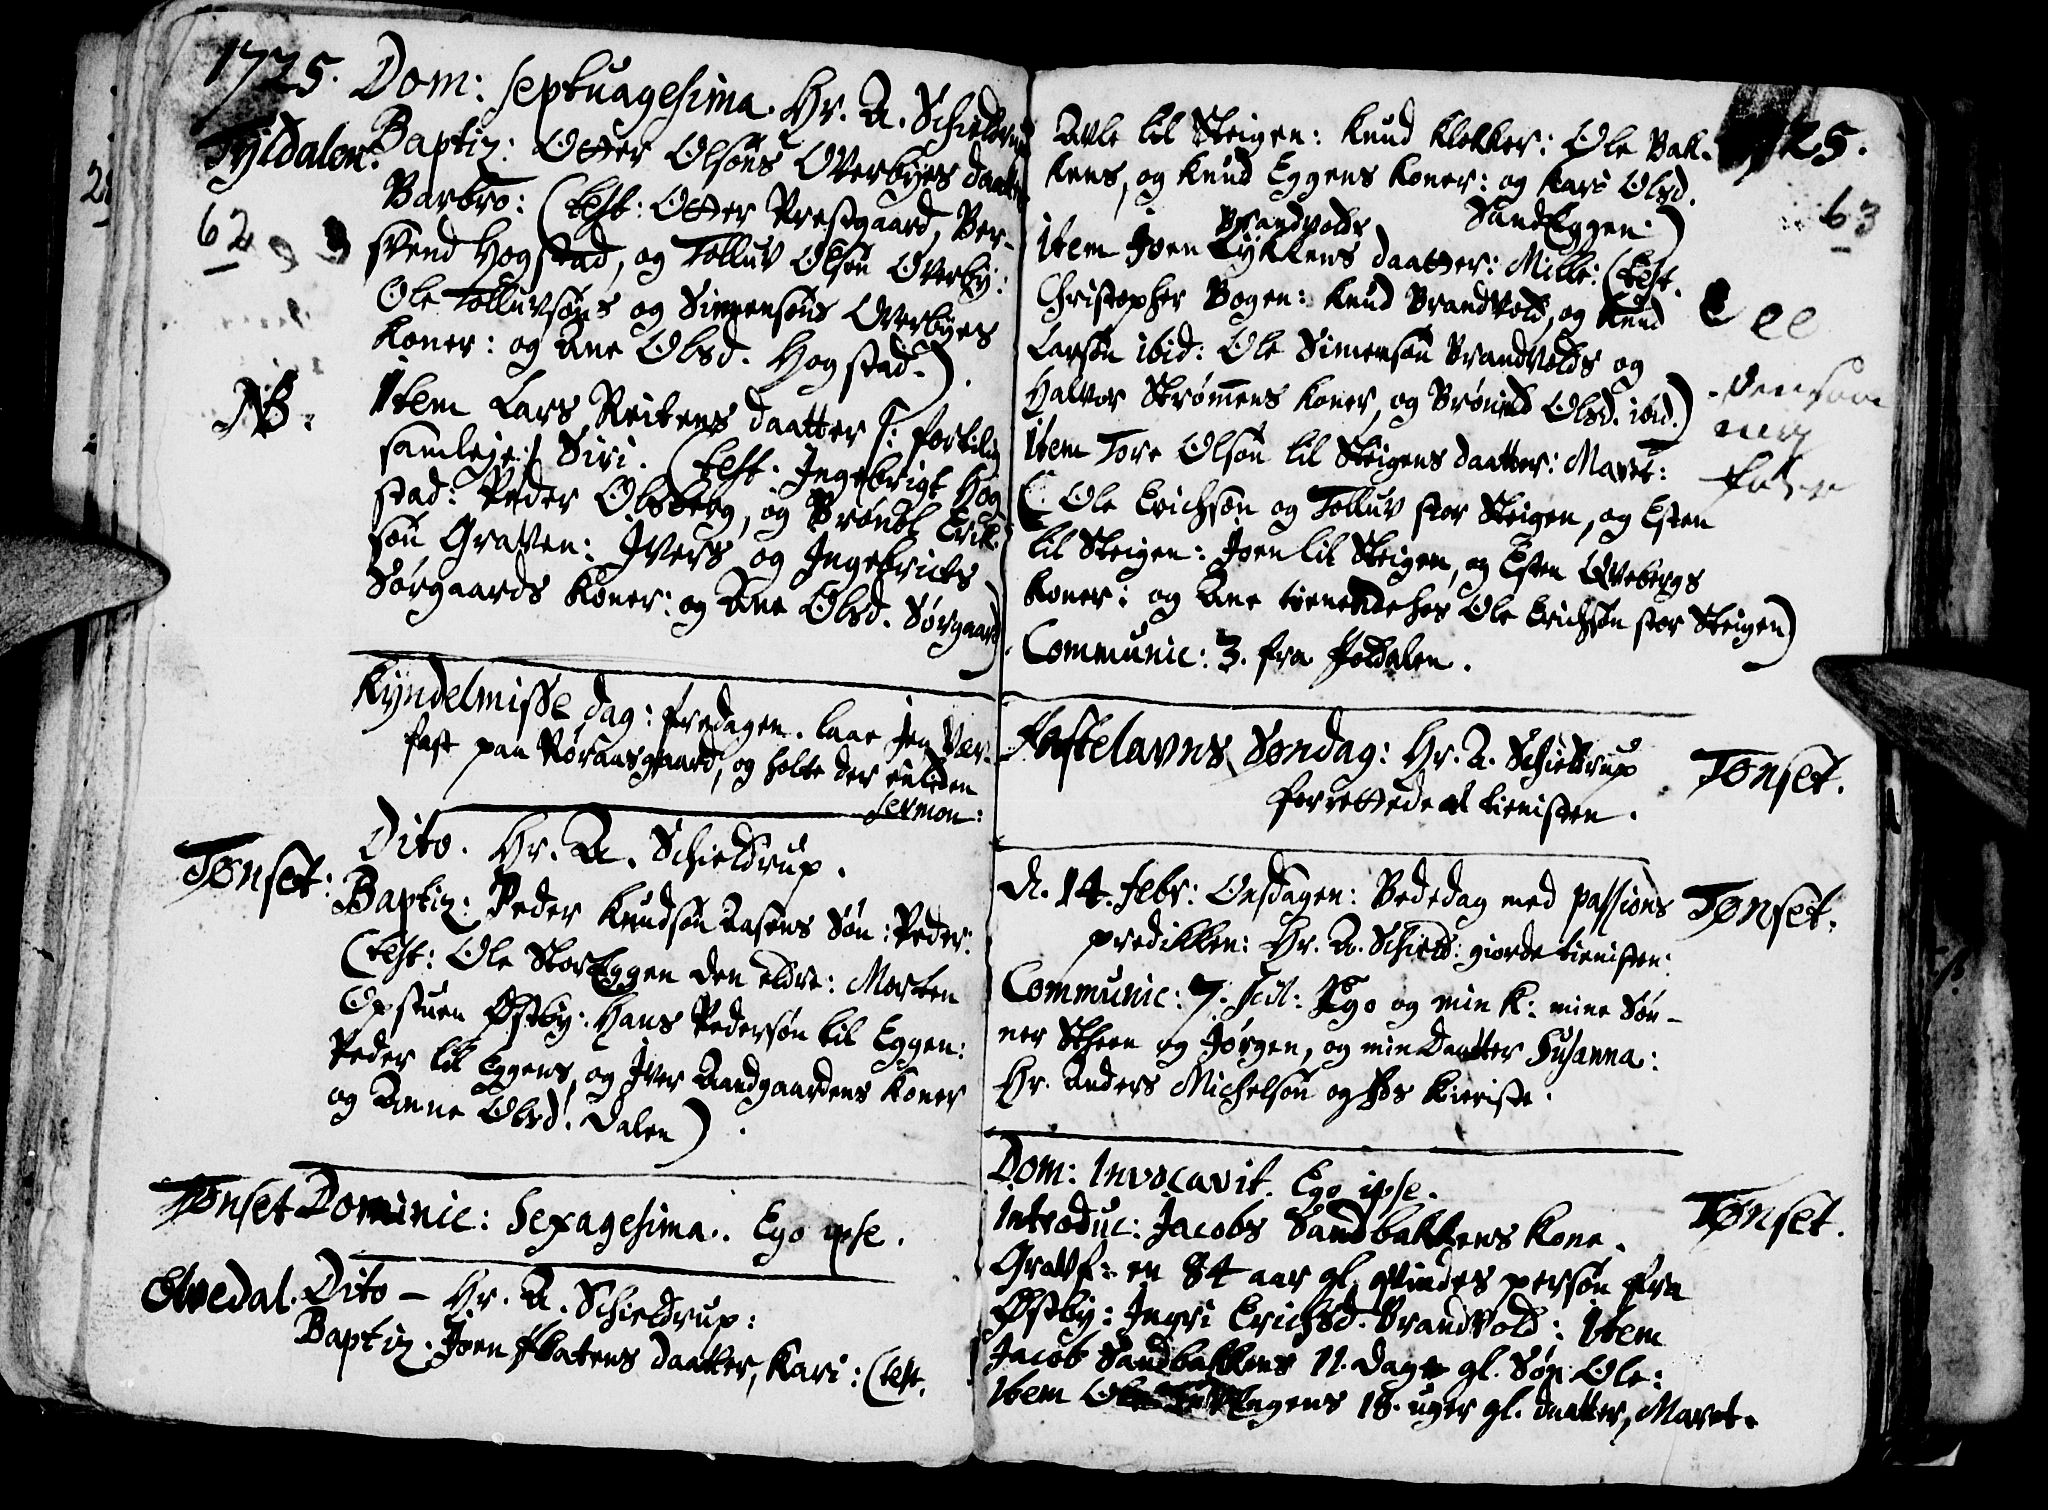 1725. Dom: septuagesima. Hr. A. Schieldrup
Tyldalen: Baptiz: Otter Olsøns Overbyes daatter
62 Barbro: (test: Otter Prestgaard, Ber-
svend Hogstad, og Tolluv Olsøn Overby:
Ole Tolluvsøns og Simensøns Overbyes
Koner: og Ane Olsd. Hogstad.)
NB: Item Lars Reitens daatter /: fortilig
samleje:/ Siri. (test. Ingebrigt Hog-
stad: Peder Olsberg, og Brønel Erik-
søn Graven: Ivers og Ingebricts
Sørgaards Koner: og Ane Olsd. Sørgaard)
Kyndelmisse dag: fredagen. laae jeg Vær-
fast paa Røraasgaard, og holte der en liden
Sermon:
Tønset: Dito. Hr. A. Schieldrup.
Baptiz: Peder Knudsøn Aasens Søn: Peder:
(test: Ole StorEggen den eldre: Morten
Opstuen Østby: Hans Pedersøn lil Eggen:
Peder lil Eggens, og Iver Aandgaardens Koner
og Anne Olsd. Dalen)
Tønset Dominic: Sexagesima. Ego ipse.
Elvedal. Dito - Hr. A. Schieldrup:
Baptiz. Joen Flatens daatter, Kari: (test.
1725.
63
Avle lil Steigen: Knud Klokker: Ole Bak-
kens, og Knud Eggens Koner: og Kari Olsd.
SandEggen:)
Brandvolds
Item Joen Lykkens daatter: Mille: (test.
Christopher Bogen: Knud Brandvold, og Knud
Larsøn ibid: Ole Simensøn Brandvolds og
Halvor Strømens Koner, og Brønild Olsd. ibid.)
Item Tore Olsøn lil Steigens daatter: Maret:
(Ole Erichsøn og Tolluv stor Steigen, og Esten
lil Steigen: Joen lil Steigen, og Esten Qvebergs
Koner: og Ane tienende hos Ole Erichsøn stor Steigen)
Communic: 3. fra Foldalen.
Fastelavns Søndag: Hr. A. Schieldrup Tønset.
forrettede al tienisten.
d. 14. Febr: Onsdagen: Bededag med passions Tønset.
predikken: Hr. A. Schield: giorde tienisten:
Communic: 7. scil: Ego og min K: mine Søn-
ner Steen og Jørgen, og min Daatter Susanna:
Hr. Anders Michelsøn og hos Kieriste.
Dom: Invocavit. Ego ipse. Tønset.
Introduc: Jacobs Sandbakkens Kone.
Gravf: en 84 aar gl. qvindes persøn fra
Østby: Ingri Erichsd. Brandvold: Item
Jacob Sandbakkens 11. dage gl. Søn Ole:
Item 18. uger gl. daatter, Maret.